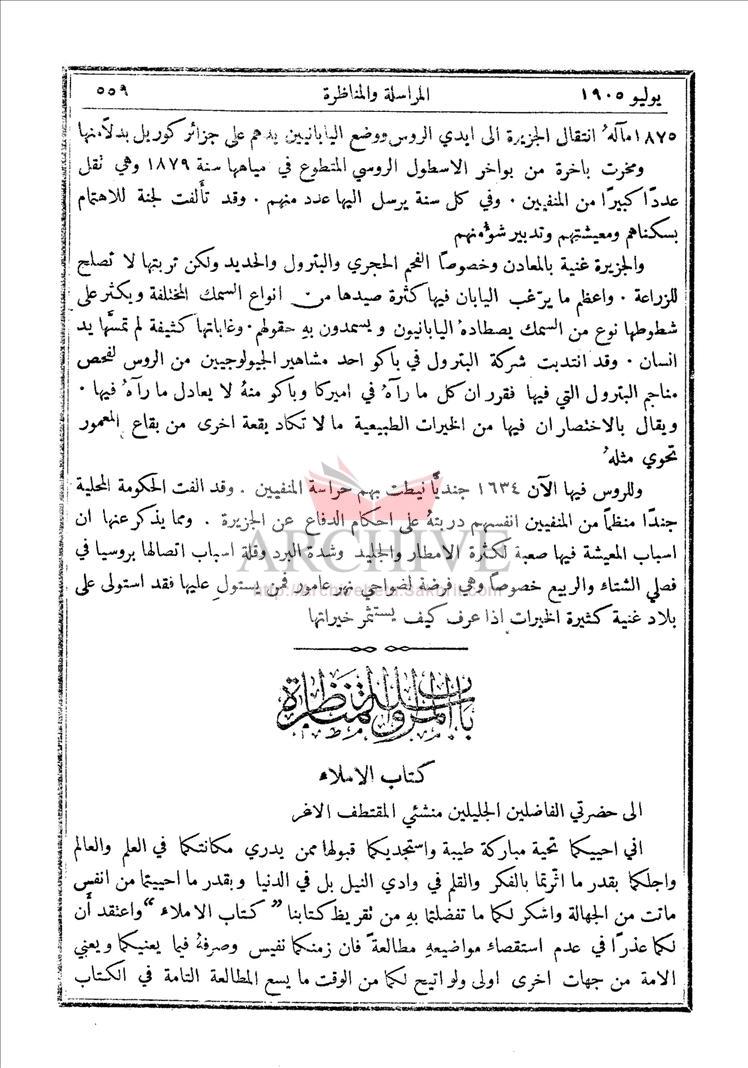 يوليو ١٩٠٥
المراسلة والمناظرة
٥٥٩
١٨٧٥ مآلهُ انتقال الجزيرة الى ايدي الروس ووضع اليابانيين يدهم على جزائر كوريل بدلاً منها
ومخرت باخرة من بواخر الاسطول الروسي المتطوع في مياهها سنة ١٨٧٩ وهي تقل
عددًا كبيرًا من المنفيين . وفي كل سنة يرسل اليها عدد منهم . وقد تألفت لجنة للاهتمام
بسكناهم ومعيشتهم وتدبير شؤونهم
والجزيرة غنية بالمعادن وخصوصًا الفحم الحجري والبترول والحديد ولكن تربتها لا تصلح
للزراعة . واعظم ما يرّغب اليابان فيها كثرة صيدها من انواع السمك المختلفة ويكثر على
شطوطها نوع من السمك يصطادهُ اليابانيون ويسمدون بهِ حقولهم . وغاباتها كثيفة لم تمسَّها يد
انسان . وقد انتدبت شركة البترول في باكو احد مشاهير الجيولوجيين من الروس لفحص
مناجم البترول التي فيها فقرر ان كل ما رآهُ في اميركا وباكو منهُ لا يعادل ما رآهُ فيها .
ويقال بالاختصار ان فيها من الخيرات الطبيعية ما لا تكاد بقعة اخرى من بقاع المعمور
تحوي مثلهُ
وللروس فيها الآن ١٦٣٤ جنديًّا نيطت بهم حراسة المنفيين . وقد الفت الحكومة المحلية
جندًا منظمًا من المنفيين انفسهم دربتهُ على احكام الدفاع عن الجزيرة . ومما يذكر عنها ان
اسباب المعيشة فيها صعبة لكثرة الامطار والجليد وشدة البرد وقلة اسباب اتصالها بروسيا في
فصلي الشتاء والربيع خصوصًا وهي فرضة لضواحي نهر عامور فمن يستولِ عليها فقد استولى على
بلاد غنية كثيرة الخيرات اذا عرف كيف يستثمر خيراتها
ARCHIVE
باب المراسلة والمناظرة
كتاب الاملاء
الى حضرتي الفاضلين الجليلين منشئي المقتطف الاغر
اني احييكما تحية مباركة طيبة واستجديكما قبولها ممن يدري مكانتكما في العلم والعالم
واجلكما بقدر ما اثّرتما بالفكر والقلم في وادي النيل بل في الدنيا وبقدر ما احييتما من انفس
ماتت من الجهالة واشكر لكما ما تفضلتما بهِ من تقريظ كتابنا " كتاب الاملاء " واعتقد أن
لكما عذرًا في عدم استقصاء مواضيعهِ مطالعةً فان زمنكما نفيس وصرفهُ فيما يعنيكما ويعني
الامة من جهات اخرى اولى ولو اتيح لكما من الوقت ما يسع المطالعة التامة في الكتاب